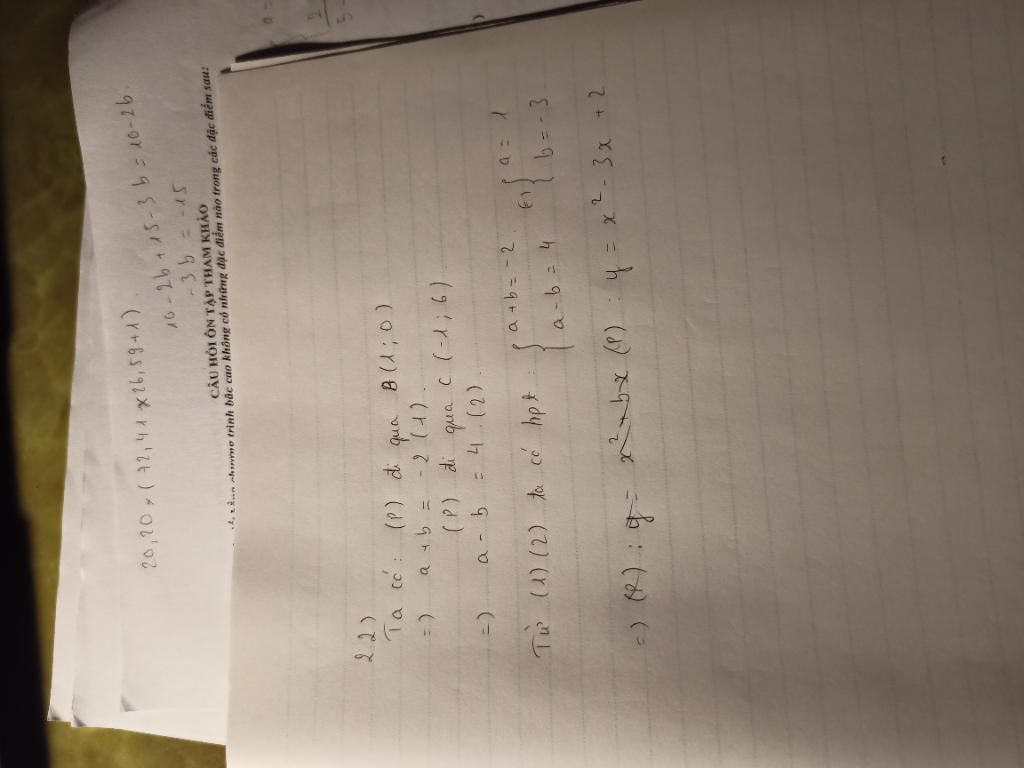 20,20 x (72,41 x 26,59+1).
10-2b+15-3b=10-2b.
-3b = -15
CÂU HỎI ÔN TẬP THAM KHẢO
chương trình bậc cao không có những đặc điểm nào trong các đặc điểm sau:
2.2)
Ta có: (P) đi qua B(1;0)
=) a+b = -2 (1).
(P) đi qua C(-1;6)
=) a-b = 4 (2).
Từ (1)(2) ta có hpt: { a+b=-2. (=) { a=1
a-b=4 b=-3.
=) (P): y= x²+bx (P): y = x² - 3x + 2